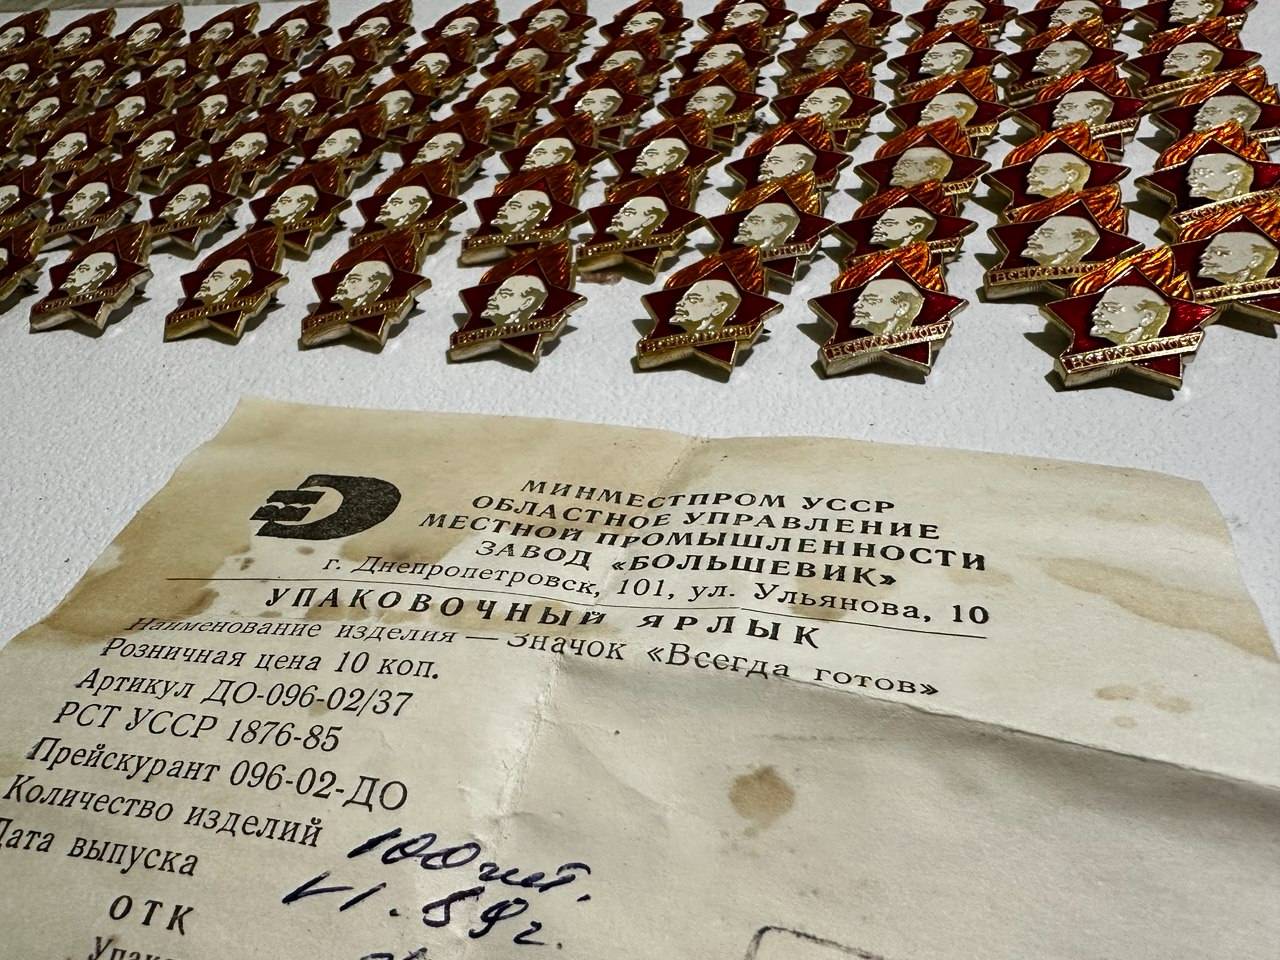 ВСЕГДА ГОТОВ
ВСЕГДА ГОТОВ
ВСЕГДА ГОТОВ
МИНМЕСТПРОМ УССР
ОБЛАСТНОЕ УПРАВЛЕНИЕ
МЕСТНОЙ ПРОМЫШЛЕННОСТИ
ЗАВОД «БОЛЬШЕВИК»
г. Днепропетровск, 101, ул. Ульянова, 10
УПАКОВОЧНЫЙ ЯРЛЫК
Наименование изделия — Значок «Всегда готов»
Розничная цена 10 коп.
Артикул ДО-096-02/37
РСТ УССР 1876-85
Прейскурант 096-02-ДО
Количество изделий 100 шт.
Дата выпуска VI. 89г.
ОТК